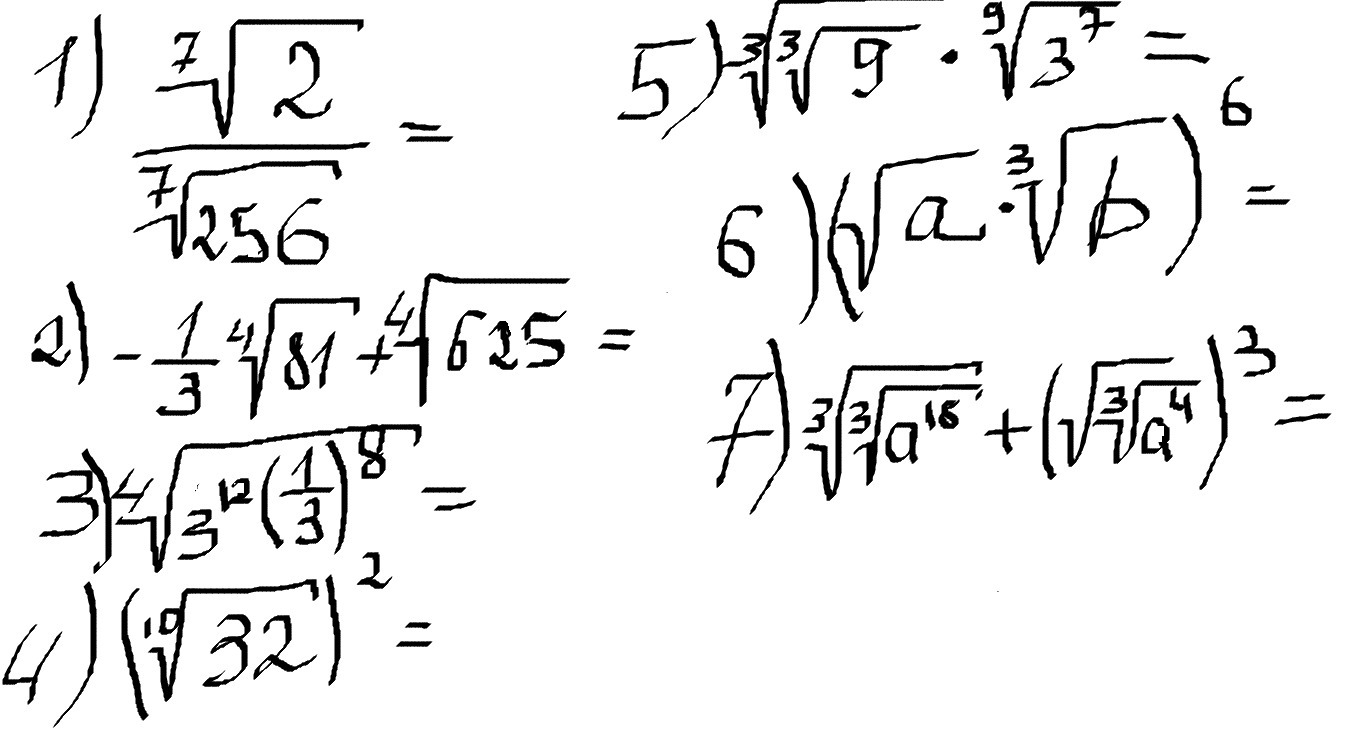 1) \frac{\sqrt[7]{2}}{\sqrt[7]{256}} =
2) -\frac{1}{3} \sqrt[4]{81} + \sqrt[4]{625} =
3) \sqrt[4]{3^{12} (\frac{1}{3})^8} =
4) (\sqrt[10]{32})^2 =
5) \sqrt[3]{\sqrt[3]{9}} · \sqrt[9]{3^7} =
6) (\sqrt{a} · \sqrt[3]{b})^6 =
7) \sqrt[3]{\sqrt[3]{a^{18}}} + (\sqrt{\sqrt[3]{a^4}})^3 =